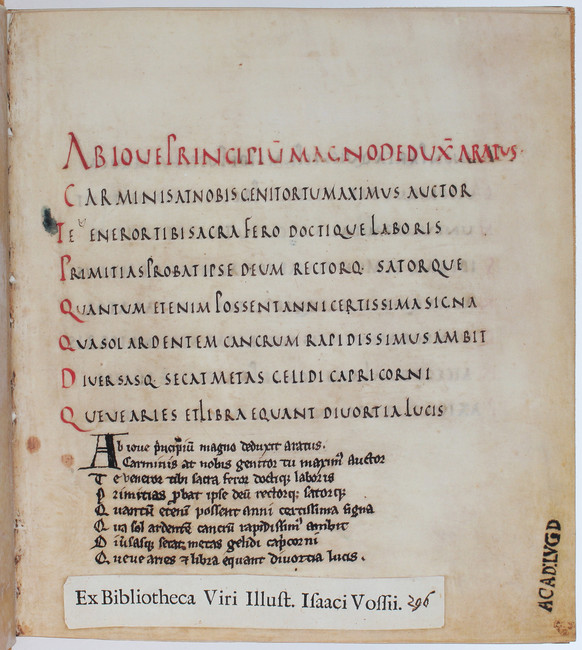 ABIOUEPRINCIPIŪMAGNODEDUX̄ ARATUS·
CARMINISATNOBISGENITORTUMAXIMUS AUCTOR
TEUENERORTIBISACRAFERO DOCTIQUELABORIS
PRIMITIASPROBATIPSE DEUM RECTORQ· SATORQUE
QUANTUM ETENIM POSSENTANNICERTISSIMASIGNA
QUASOLARDENTEM CANCRUM RAPIDISSIMUSAMBIT
DIUERSASQ SECATMETAS GELIDI CAPRICORNI
QUEUEARIES ETLIBRA EQUANT DIUORTIA LUCIS
Ab ioue pͥncipiū magno deduxit aratus.
Carminis at nobis genitor tu maximꝰ auctor
Te veneror tibi sacra feror doctiqꝫ laboris
Primitias ꝓbat ipse deū rectorqꝫ satorqꝫ
Quantū etenī possent anni certissima signa
Qua sol ardentē cancrū rapidissimꝰ ambit
Diūsasqꝫ secat metas gelidi capͥcorni
Queue aries ⁊ libra equant diuortia lucis.
Ex Bibliotheca Viri Illuſt. Iſaaci Voſſii. 296
ACAD·LVGD